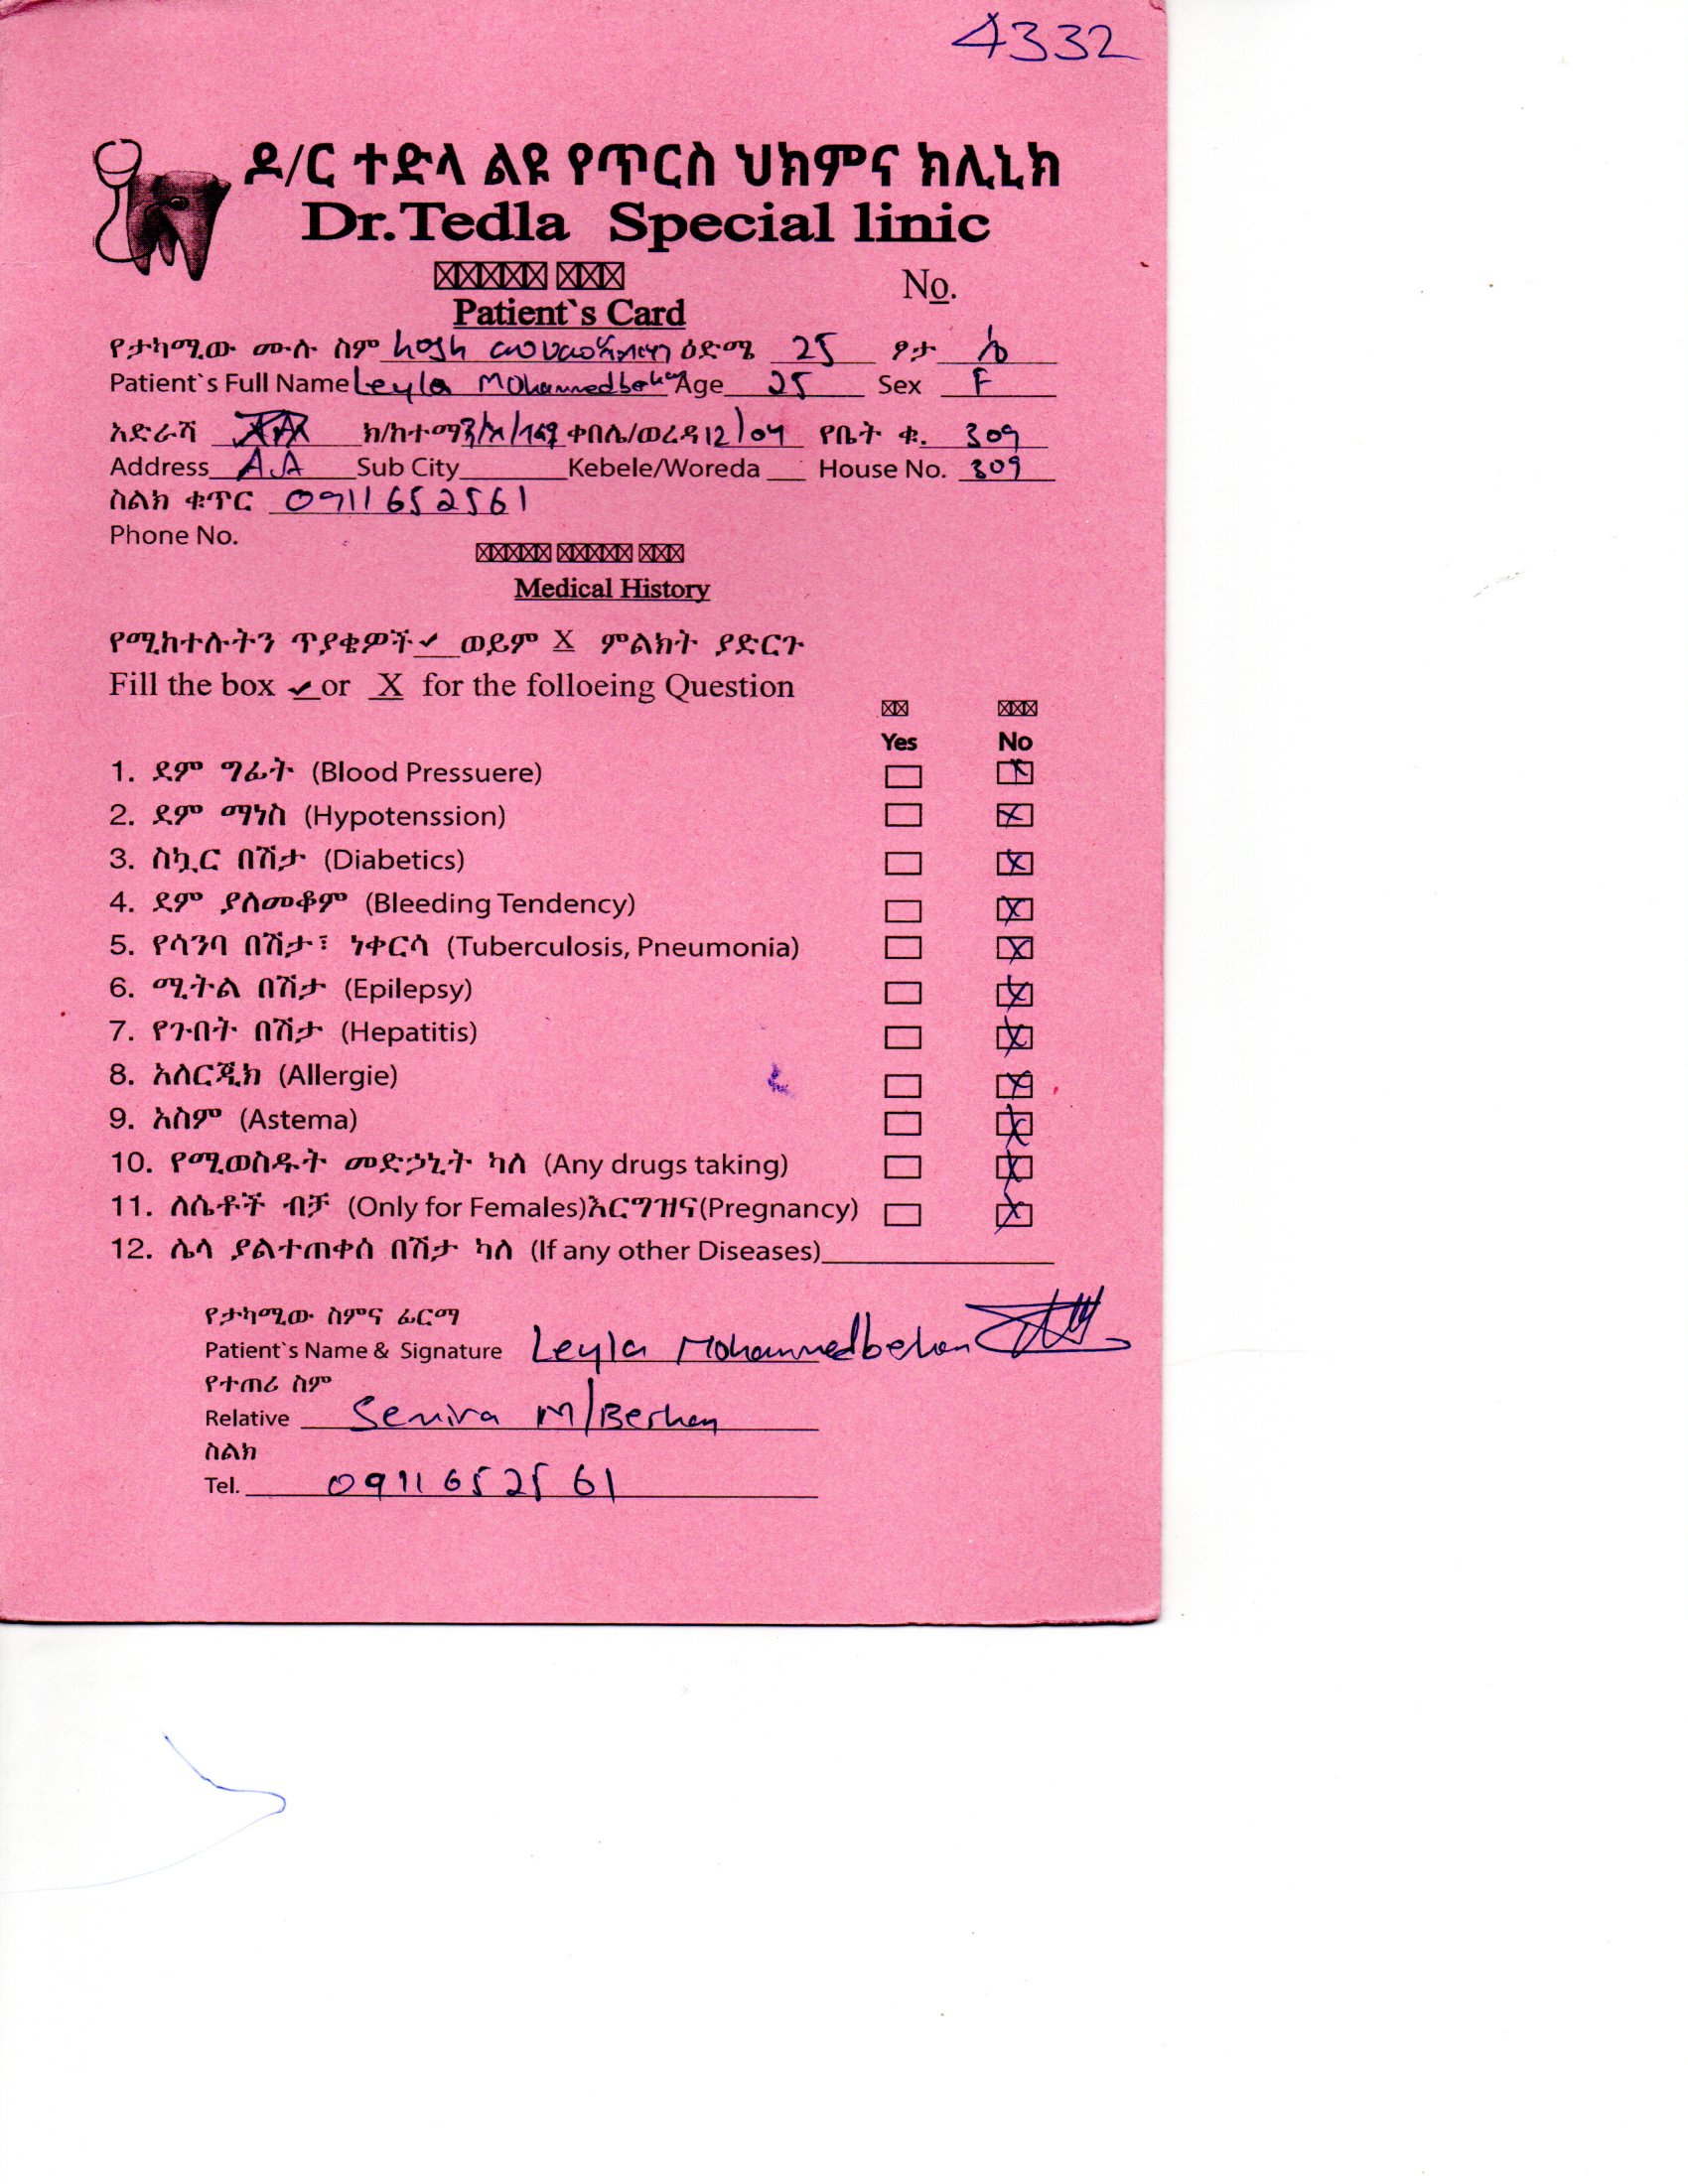 4332
ዶ/ር ተድላ ልዩ የጥርስ ህክምና ክሊኒክ
Dr.Tedla Special linic
No.
Patient`s Card
የታካሚው ሙሉ ስም ዕድሜ 25 ፆታ
Patient`s Full Name Leyla Age 25 Sex F
አድራሻ ክ/ከተማ ቀበሌ/ወረዳ 12/04 የቤት ቁ. 309
Address A.A Sub City Kebele/Woreda House No. 309
ስልክ ቁጥር 0911652561
Phone No.
Medical History
የሚከተሉትን ጥያቄዎች ✓ ወይም X ምልክት ያድርጉ
Fill the box ✓ or X for the folloeing Question
Yes No
1. ደም ግፊት (Blood Pressuere)
2. ደም ማነስ (Hypotenssion)
3. ስኳር በሽታ (Diabetics)
4. ደም ያለመቆም (Bleeding Tendency)
5. የሳንባ በሽታ፣ ነቀርሳ (Tuberculosis, Pneumonia)
6. ሚትል በሽታ (Epilepsy)
7. የጉበት በሽታ (Hepatitis)
8. አለርጂክ (Allergie)
9. አስም (Astema)
10. የሚወስዱት መድኃኒት ካለ (Any drugs taking)
11. ለሴቶች ብቻ (Only for Females)እርግዝና(Pregnancy)
12. ሌላ ያልተጠቀሰ በሽታ ካለ (If any other Diseases)
የታካሚው ስምና ፊርማ
Patient`s Name & Signature Leyla Mohammedbehan
የተጠሪ ስም
Relative M/Berhan
ስልክ
Tel. 0911652561